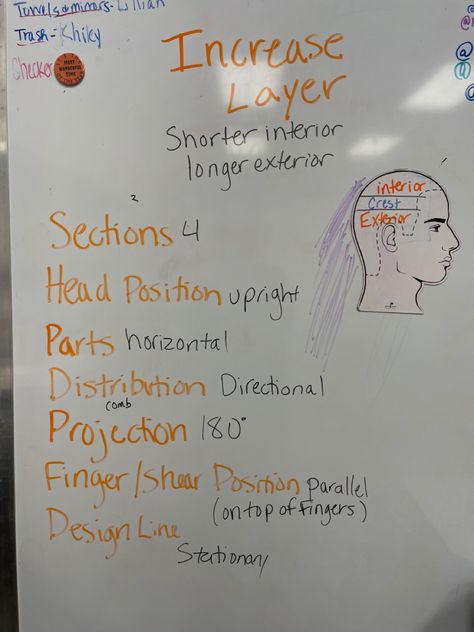 Trash - Khiley
Checker
MOST
WONDERFUL
TIME
Increase
Layer
Shorter interior
longer exterior
interior
Crest
Exterior
Sections 4
Head Position upright
Parts horizontal
Distribution Directional
comb
Projection 180°
Finger/Shear Position parallel
(on top of Fingers)
Design Line
Stationary